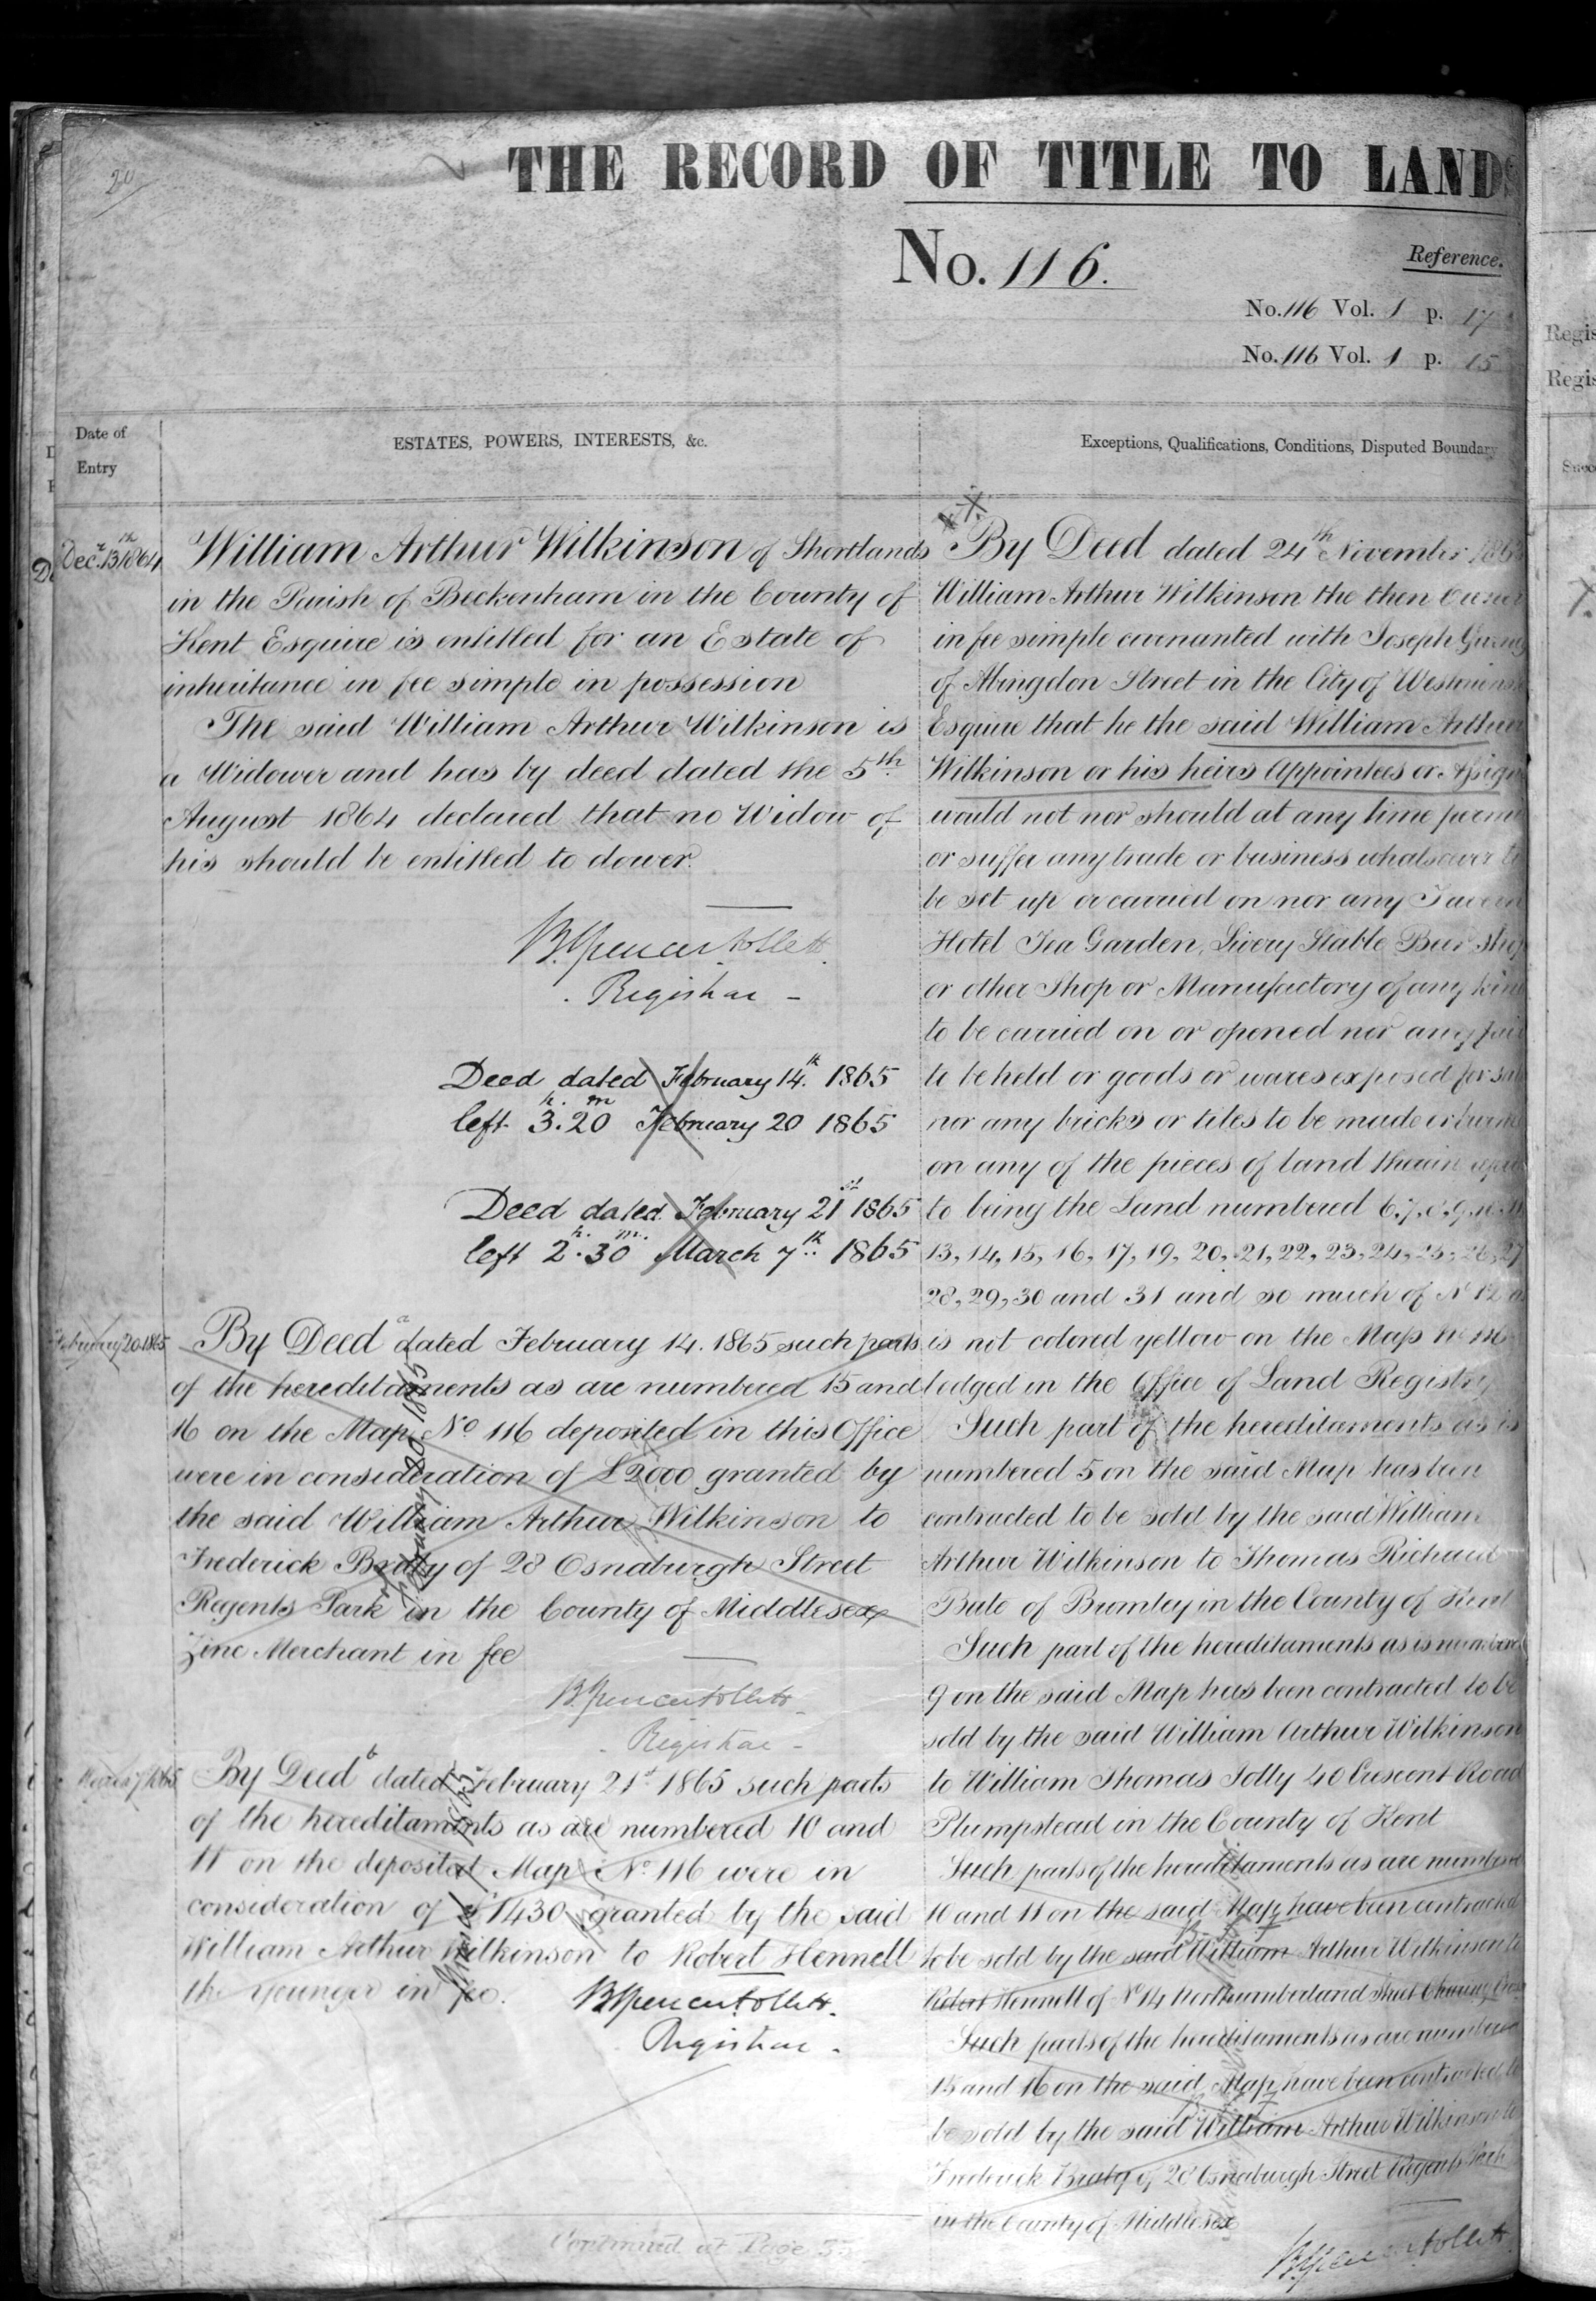 20
THE RECORD OF TITLE TO LANDS
No. 116.
Reference.
No. 116 Vol. 1 p. 17
No. 116 Vol. 1 p. 15
Date of
Entry
ESTATES, POWERS, INTERESTS, &c.
Exceptions, Qualifications, Conditions, Disputed Boundary
Decr 13th 1864
William Arthur Wilkinson of Shortlands
in the Parish of Beckenham in the County of
Kent Esquire is entitled for an Estate of
inheritance in fee simple in possession
The said William Arthur Wilkinson is
a Widower and has by deed dated the 5th
August 1864 declared that no Widow of
his should be entitled to dower.
B. Spencer Follett.
Registrar
Deed dated February 14th 1865
left 3h. 20m February 20 1865
Deed dated February 21st 1865
left 2h. 30m. March 7th 1865
February 20 1865
By Deed a dated February 14. 1865 such parts
of the hereditaments as are numbered 15 and
16 on the Map No 116 deposited in this Office
were in consideration of £2000 granted by
the said William Arthur Wilkinson to
Frederick Braby of 28 Osnaburgh Street
Regents Park in the County of Middlesex
Zinc Merchant in fee
B. Spencer Follett
Registrar
March 7 1865
By Deed b dated February 21st 1865 such parts
of the hereditaments as are numbered 10 and
11 on the deposited Map No 116 were in
consideration of £1430 granted by the said
William Arthur Wilkinson to Robert Hennell
the younger in fee.
B Spencer Follett.
Registrar
Continued at Page
By Deed dated 24th November
William Arthur Wilkinson the then Owner
in fee simple covenanted with Joseph
of Abingdon Street in the City of
Esquire that he the said William Arthur
Wilkinson or his heirs Appointees or
would not nor should at any time
or suffer any trade or business whatsoever
be set up or carried on nor any Tavern
Hotel Tea Garden, Livery Stable Beer shop
or other Shop or Manufactory of any kind
to be carried on or opened nor any fair
to be held or goods or wares exposed for
nor any bricks or tiles to be made or
on any of the pieces of land therein
to being the Land numbered 6.7.8.9.
13, 14, 15, 16, 17, 19, 20, 21, 22, 23, 24, 25, 26, 27
28, 29, 30 and 31 and so much of No 12 as
is not colored yellow on the Map No 116
lodged in the Office of Land Registry
Such part of the hereditaments as is
numbered 5 on the said Map has been
contracted to be sold by the said William
Arthur Wilkinson to Thomas Richard
of Bromley in the County of Kent
Such part of the hereditaments as is numbered
9 on the said Map has been contracted to be
sold by the said William Arthur Wilkinson
to William Thomas Jolly 40 Crescent Road
Plumpstead in the County of Kent
Such parts of the hereditaments as are numbered
10 and 11 on the said Map have been contracted
to be sold by the said William Arthur Wilkinson to
Robert Hennell of No 14 Northumberland Street Charing Cross
Such parts of the hereditaments as are numbered
15 and 16 on the said Map have been contracted to
be sold by the said William Arthur Wilkinson to
Frederick Braby of 28 Osnaburgh Street Regents Park
in the County of Middlesex
B. Spencer Follett